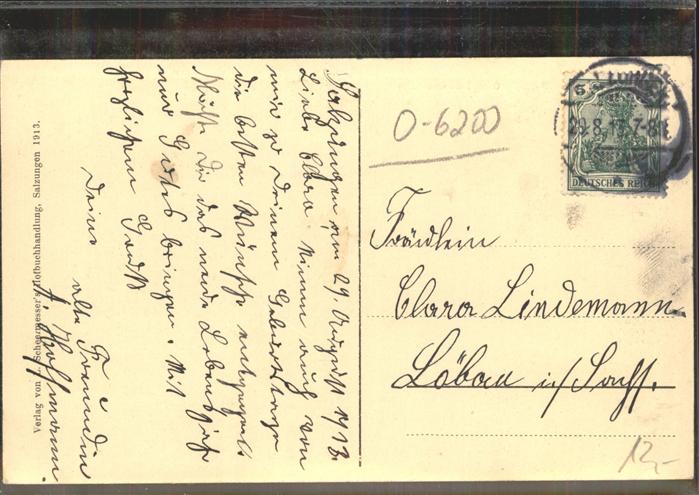 Salzungen am 29. August 1913.
Liebe Clara! Nimm auch von
mir zu Deinem Geburtstage
die besten Wünsche entgegen.
Möchte Dir das neue Lebensjahr
nur Gutes bringen. Mit
herzlichem Gruß
Deine
alte Freundin
A. Hoffmann.
Verlag von Scheermesser's Hofbuchhandlung, Salzungen 1913.
O-6200
5
29.8.13.7-8N
DEUTSCHES REICH
Fräulein
Clara Lindemann
Löbau i/Sachs.
12,-